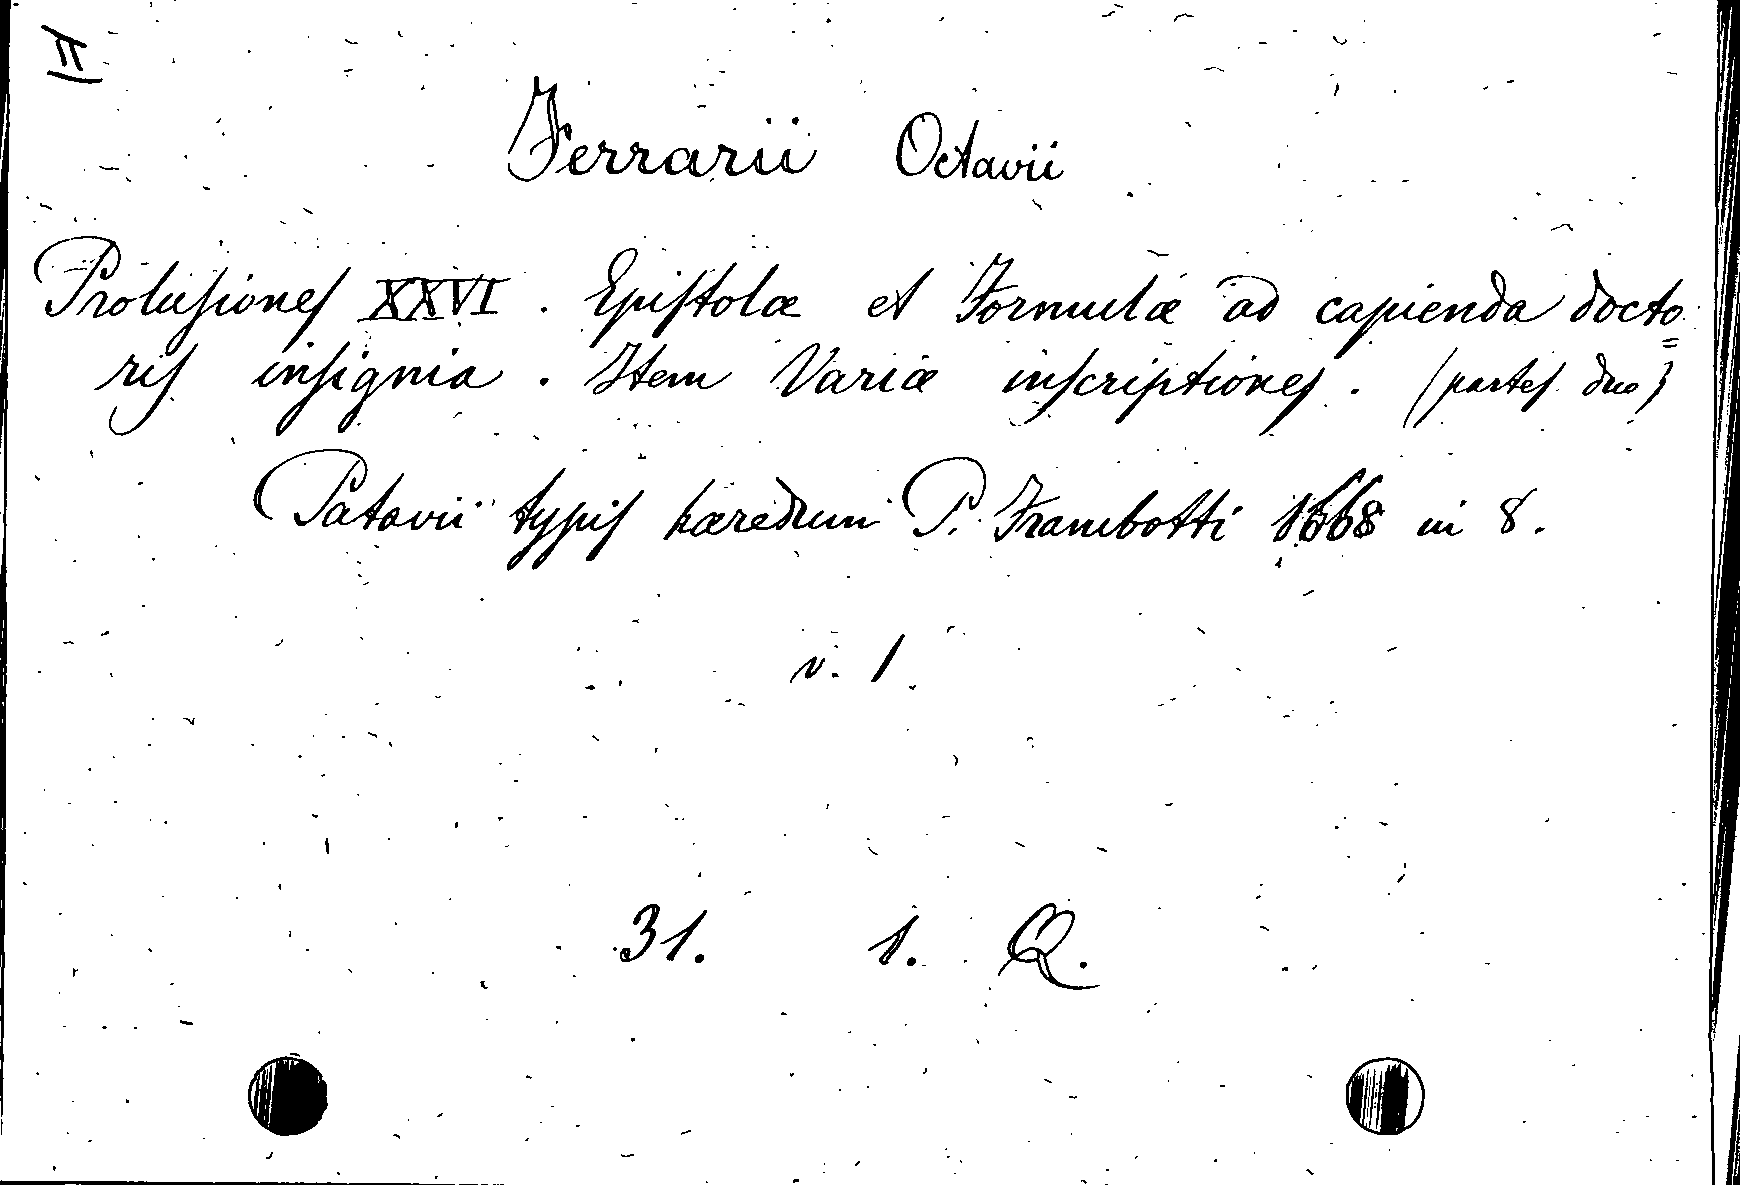 II
Ferrarii Octavii
Prolusiones XXVI. Epistolæ et Formulæ ad capienda docto=
ris insignia. Item Variæ inscriptiones. (partes duo)
Patavii typis hæredum P. Frambotti 1668 in 8.
v. 1
31. 1. Q.